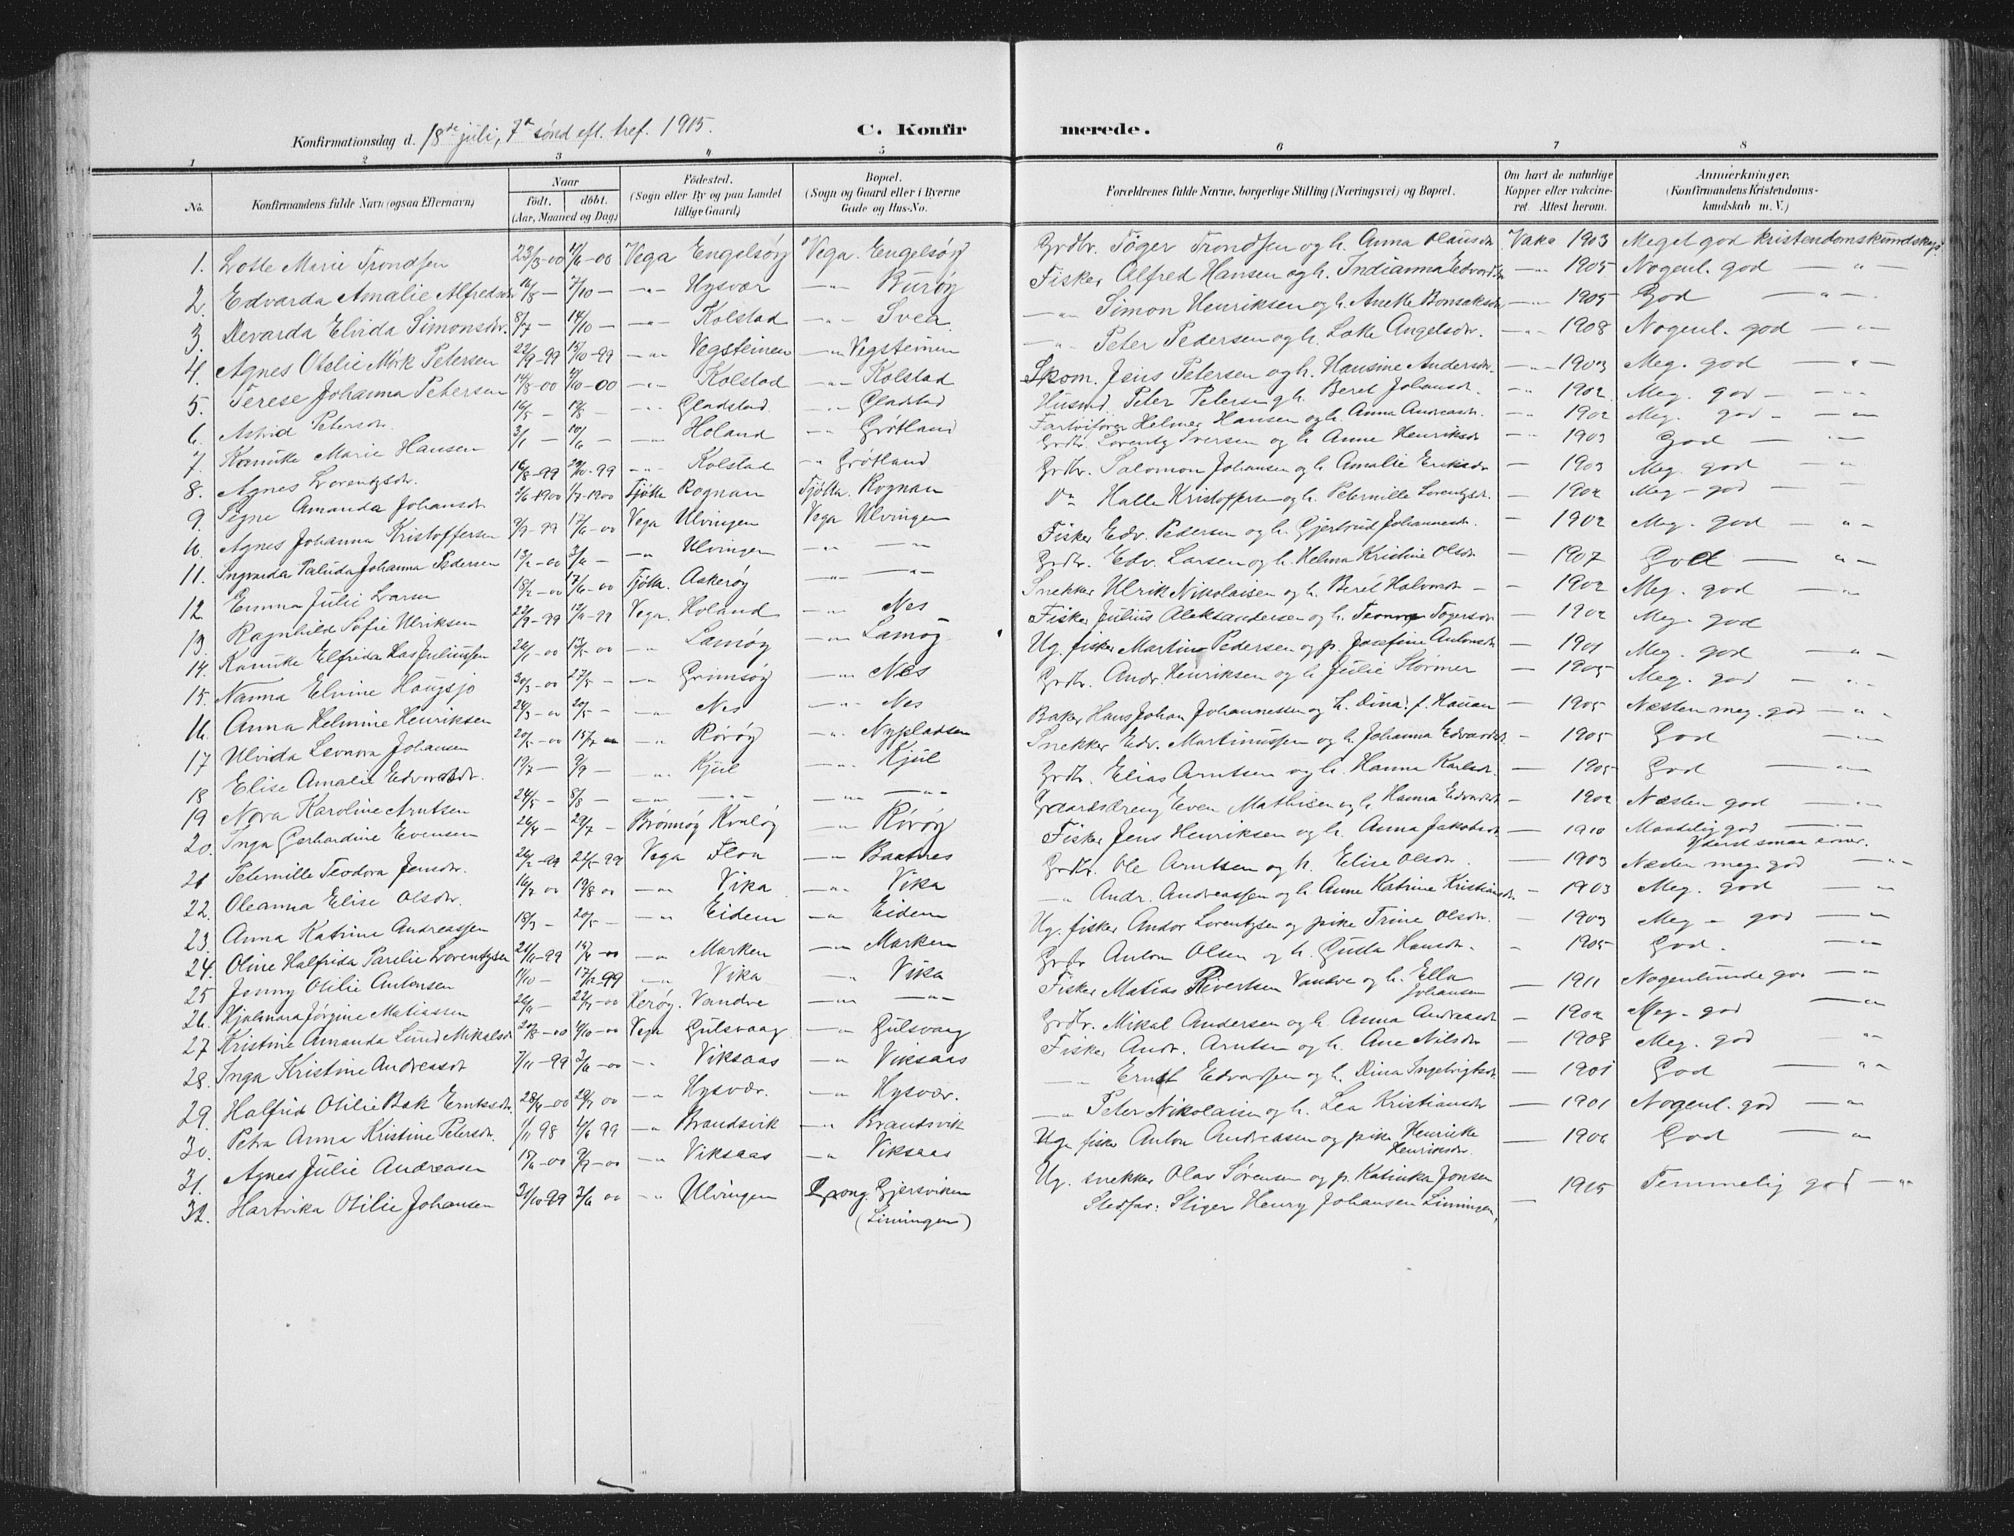 Konfirmationsdag d. 18de juli, 7de sønd eft. tref. 1915.
C. Konfirmerede.
1 2 3 4 5 6 7 8
No. Konfirmandens fulde Navn (ogsaa Efternavn) Naar født. døbt. (Aar, Maaned og Dag) Fødested. (Sogn eller By og paa Landet tillige Gaard) Bopæl. (Sogn og Gaard eller i Byerne Gade og Hus-No. Forældrenes fulde Navne, borgerlige Stilling (Næringsvei) og Bopæl. Om havt de naturlige Kopper eller vakcineret. Attest herom. Anmerkninger. (Konfirmandens Kristendomskundskab m. V.)
1. Lotte Marie Trondsen 23/3-00 17/6-00 Vega Engelsøy Vega. Engelsøy Grdbr. Tøger Trondsen og h. Anna Olausdr Vakc 1903 Meget god kristendomskundskap
2. Edvarda Amalie Alfredsdr 16/8 — 7/10 — -"- Hysvær -"- Burøy Fisker Alfred Hansen og h. Indianna Edvardsdr -"- 1905 Nogenl. god -"-
3. Devarda Elvida Simonsdr. 8/7 — 14/10 — -"- Kolstad -"- Svea -"- Simon Henriksen og h. Anette Bonsaksdr -"- 1905 God -"-
4. Agnes Otelie Mörk Petersen 22/9-99 15/10-99 -"- Vegsteinen -"- Vegsteinen -"- Peter Pedersen og h. Lotte Angelsdr. -"- 1908 Nogenl. god -"-
5. Terese Johanna Petersen 14/8-00 7/10-00 -"- Kolstad -"- Kolstad Skom. Jens Petersen og h. Hansine Andersdr -"- 1903 Meg. god "
6. Astrid Petersdr. 16/5 — 19/8 — -"- Gladstad -"- Gladstad Husmd. Peter Petersen og h. Beret Johansdr. " 1902 Meg. god — -"-
7. Kanutte Marie Hansen 3/1 — 10/6 — " Holand " Grötland Fartöifører Helmer Hansen og h. Anna Andreasdr. -"- 1902 Meg. god - -"-
8. Agnes Lorentzdr. 16/8-99 29/10-99 -"- Kolstad " Grötland Grdbr. Lorentz Iversen og h. Anne Henriksdr -"- 1903 God — -"-
9. Signe Amanda Johansdr 2/6-1900 1/7-1900 Tjøtta Rognan Tjøtta. Rognan Grdbr. Salomon Johansen og h. Amalie Eriksdr — 1903 Meg. god — -"-
10. Agnes Johanna Kristoffersen 9/9-99 17/6-00 Vega Ulvingen Vega Ulvingen Do Halle Kristoffersen og h. Peternille Lorentzdr. — 1902 Meg — god — -"-
11. Ingvarda Paluda Johanna Pedersen 13/2-00 3/6 — -"- Ulvingen -"- — Fisker Edv. Pedersen og h. Gjertrud Johannesdr. — 1902 Meg. god "-
12. Emma Julie Larsen 18/2-00 17/6-00 Tjøtta. Askerøy -"- — Grdbr. Edv. Larsen og h. Helma Kristine Olsdr — 1907 God — "-
13. Ragnhild Sofie Ulriksen 22/9-99 12/11-99 Vega. Holand -"- Nes Snekker Ulrik Nikolaisen og h. Beret Halvorsdr — 1902 Meg. god -"-
14. Kanutte Elfrida Juliussen 26/1-00 13/5-00 -"- Lamøy -"- Lamøy Fisker Julius Aleksandersen og h. Togersdr — 1902 Meg. god
15. Nanna Elvine Haugsjo 30/3-00 27/5 — -"- Grimsøy -"- Nes Ug. fisker Martin Pedersen og p. Josefine Antonsdr — 1901 Meg. god — -"-
16. Anna Helmine Henriksen 24/3-00 20/5 — " Nes " Nes Grdbr. Andr. Henriksen og h. Julie Störmer — 1905 Meg. god — "
17 Ulvida Leonora Johansen 20/5-00 15/7 — " Rörøy " Nypladsen Baker Hans Johan Johannessen og h. Dina f. Hauan — 1905 Næsten meg. god — "
18 Elise Amalie Edvardsdr. 19/7 — 9/9 — " Kjul " Kjul Snekker Edv. Martinussen og h. Johanna Edvardsdr. — 1905 God -"-
19 Nora Karoline Arntsen 24/5 — 8/8 — -"- -"- -"- -"- Grdbr. Elias Arntsen og h. Hanna Karlsdr. — 1905 God -"-
20. Inga Gerhardine Evensen 26/4 — 29/7 — Brønnøy Kvaløy -"- Rörøy Gaardsdreng Even Mathisen og h. Hanna Edvardsdr — 1902 Næsten god — "
21 Peternille Teodora Jensdr. 26/2-99 22/5-99 Vega Floa -"- Baatnes Fisker Jens Henriksen og h. Anna Jakobsdr — 1910 Maadelig god Yderst smaa evner.
22. Oleanna Elise Olsdr. 16/7-00 19/8-00 -"- Vika -"- Vika Grdbr. Ole Arntsen og h. Elise Olsdr. — 1903 Næsten meg. god -"-
23 Anna Katrine Andreassen 18/3 — 20/5 — -"- Eidem -"- Eidem -"- Andr. Andreassen og h. Anne Katrine Kristiansdr — 1903 Meg. god -"-
24. Oline Halfrida Parelie Lorentzsen 21/10-99 15/4-00 " Marken -"- Marken Ug. fisker Andor Lorentzen og pike Trine Olsdr. — 1903 Meg - god -"-
25 Jonny Otilie Antonsen 1/10 — 17/12-99 -"- Vika -"- Vika Grdbr Anton Olsen og h. Gusta Hansdr. - 1905 God. -"-
26. Hjalmara Jørgine Matiassen 26/11 — 22/7-00 Herøy. Vandve -"- — Fisker Matias Sivertsen Vandve og h. Ella Johansen — 1911 Nogenlunde god -"-
27 Kristine Amanda Lund Mikalsdr 20/8-00 7/10-00 Vega Gulsvaag -"- Gulsvaag Grdbr. Mikal Andersen og h. Anna Andreasdr — 1902 Meg. god -"-
28. Inga Kristine Andreasdr 7/11-99 3/6-00 " Viksaas -"- Viksaas Fisker Andr. Arntsen og h. Ane Nilsdr — 1908 Meg. god "
29. Halfrid Otilie Bak Erntsdr. 28/4-00 29/7 00 -"- Hysvær. -"- Hysvær. -"- Ernst Edvardsen og h. Dina Ingebrigtsdr. — 1901 God "-
30. Petra Anna Kristine Petersdr. 1/11 98 4/6 99 -"- Brandsvik -"- Brandsvik -"- Peter Nikolaisen og h. Lea Kristiansdr — 1901 Nogenl. god — -"-
31. Agnes Julie Andreasen 15/6-00 9/7-00 -"- Viksaas -"- Viksaas Ug. fisker Anton Andreasen og pike Henrikke Henriksdr. — 1906 God — -"-
32. Hartvika Otilie Johansen 31/10-99 3/6 00 -"- Ulvingen Grong. Gjersviken (Limingen) Ug. snekker Olav Sørensen og p. Katinka Jonsen Stedfar: Stiger Henry Johansen Limingen, — 1915 Temmelig god — "-